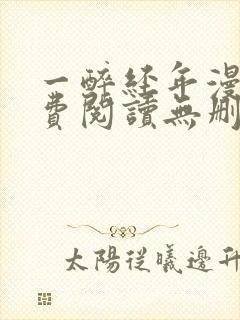 一醉经年漫
費閱讀無刪
太陽從曦邊升